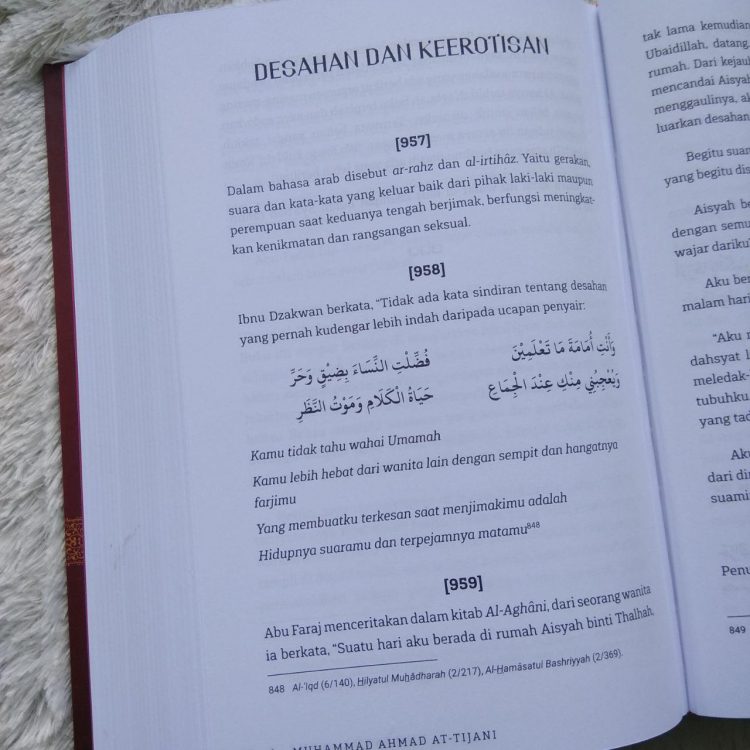 DESAHAN DAN KEEROTISAN
[957]
Dalam bahasa arab disebut ar-rahz dan al-irtihâz. Yaitu gerakan,
suara dan kata-kata yang keluar baik dari pihak laki-laki maupun
perempuan saat keduanya tengah berjimak, berfungsi meningkat-
kan kenikmatan dan rangsangan seksual.
[958]
Ibnu Dzakwan berkata, “Tidak ada kata sindiran tentang desahan
yang pernah kudengar lebih indah daripada ucapan penyair:
وَأَنْتِ أُمَامَةَ مَا تَعْلَمِيْنَ فُضِّلْتِ النِّسَاءَ بِضِيْقٍ وَحَرٍّ
وَيُعْجِبُنِي مِنْكِ عِنْدَ الْجِمَاعِ حَيَاةُ الْكَلَامِ وَمَوْتُ النَّظَرِ
Kamu tidak tahu wahai Umamah
Kamu lebih hebat dari wanita lain dengan sempit dan hangatnya
farjimu
Yang membuatku terkesan saat menjimakimu adalah
Hidupnya suaramu dan terpejamnya matamu848
[959]
Abu Faraj menceritakan dalam kitab Al-Aghâni, dari seorang wanita
ia berkata, “Suatu hari aku berada di rumah Aisyah binti Thalhah,
848 Al-'Iqd (6/140), Hilyatul Muhâdharah (2/217), Al-Hamâsatul Bashriyyah (2/369).
MUHAMMAD AHMAD AT-TIJANI
tak lama kemudian
Ubaidillah, datang.
rumah. Dari kejauh
mencandai Aisyah
menggaulinya, a
luarkan desahan
Begitu suar
yang begitu dis
Aisyah be
dengan semu
wajar dariku
Aku ber
malam hari
“Aku m
dahsyat l
meledak-
tubuhku
yang tad
Aku
dari din
suami
Penu
849